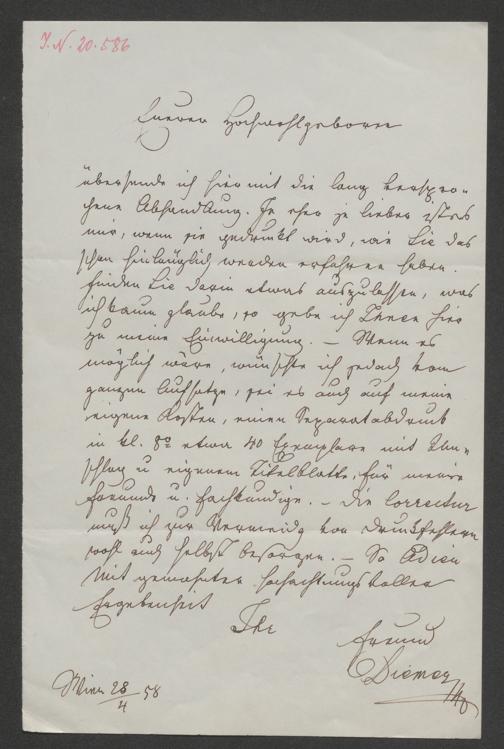 I. N. 20.586
Euerer Hochwohlgeboren
übersende ich hiermit die lang verspro-
chene Abhandlung. Je eher je lieber ist es
mir, wenn sie gedruckt wird, wie Sie das
schon hinlänglich werden erfahren haben.
Finden Sie darin etwas auszulassen, was
ich kaum glaube, so gebe ich Ihnen hier
zu meine Einwilligung. – Wenn es
möglich wäre, wünschte ich jedoch vom
ganzen Aufsatze, sei es auch auf meine
eigene Kosten, einen Separatabdruck
in kl. 8º etwa 40 Exemplare mit Um-
schlag u eigenem Titelblatte, für meine
Freunde u. Fachkundige. – Die Correctur
muß ich zur Vermeidg von Druckfehlern
wohl auch selbst besorgen. – So Adieu
Mit gewohnter hochachtungsvoller
Ergebenheit
Ihr
Freund
Diemer
Wien 28/4 58